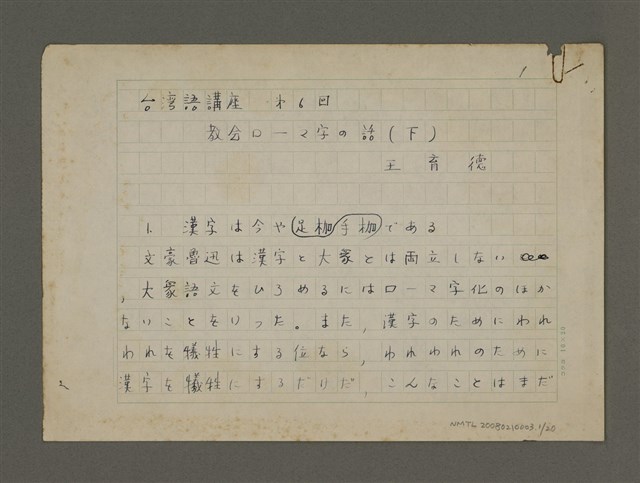 1
台湾語講座 第6回
教会ローマ字の話(下)
王育徳
1. 漢字は今や足枷手枷である
文豪魯迅は漢字と大衆とは両立しない
、大衆語文をひろめるにはローマ字化のほか
ないことをいった。また、漢字のためにわれ
われを犠牲にする位なら、われわれのために
漢字を犠牲にするだけだ、こんなことはまだ
NMTL 20080210003.1/20